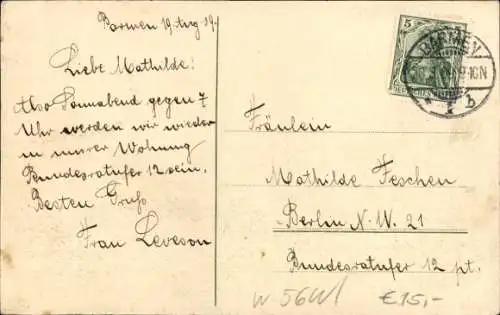 Barmen 19. Aug 19.
Liebe Mathilde!
Also Sonnabend gegen 7
Uhr werden wir wieder
in unsrer Wohnung
Bundesratufer 12 sein.
Besten Gruß
Frau Leveson
5
BARMEN
9-10N
* b
Fräulein
Mathilde Feschen
Berlin N.W. 21
Bundesratufer 12 pt.
€15,-